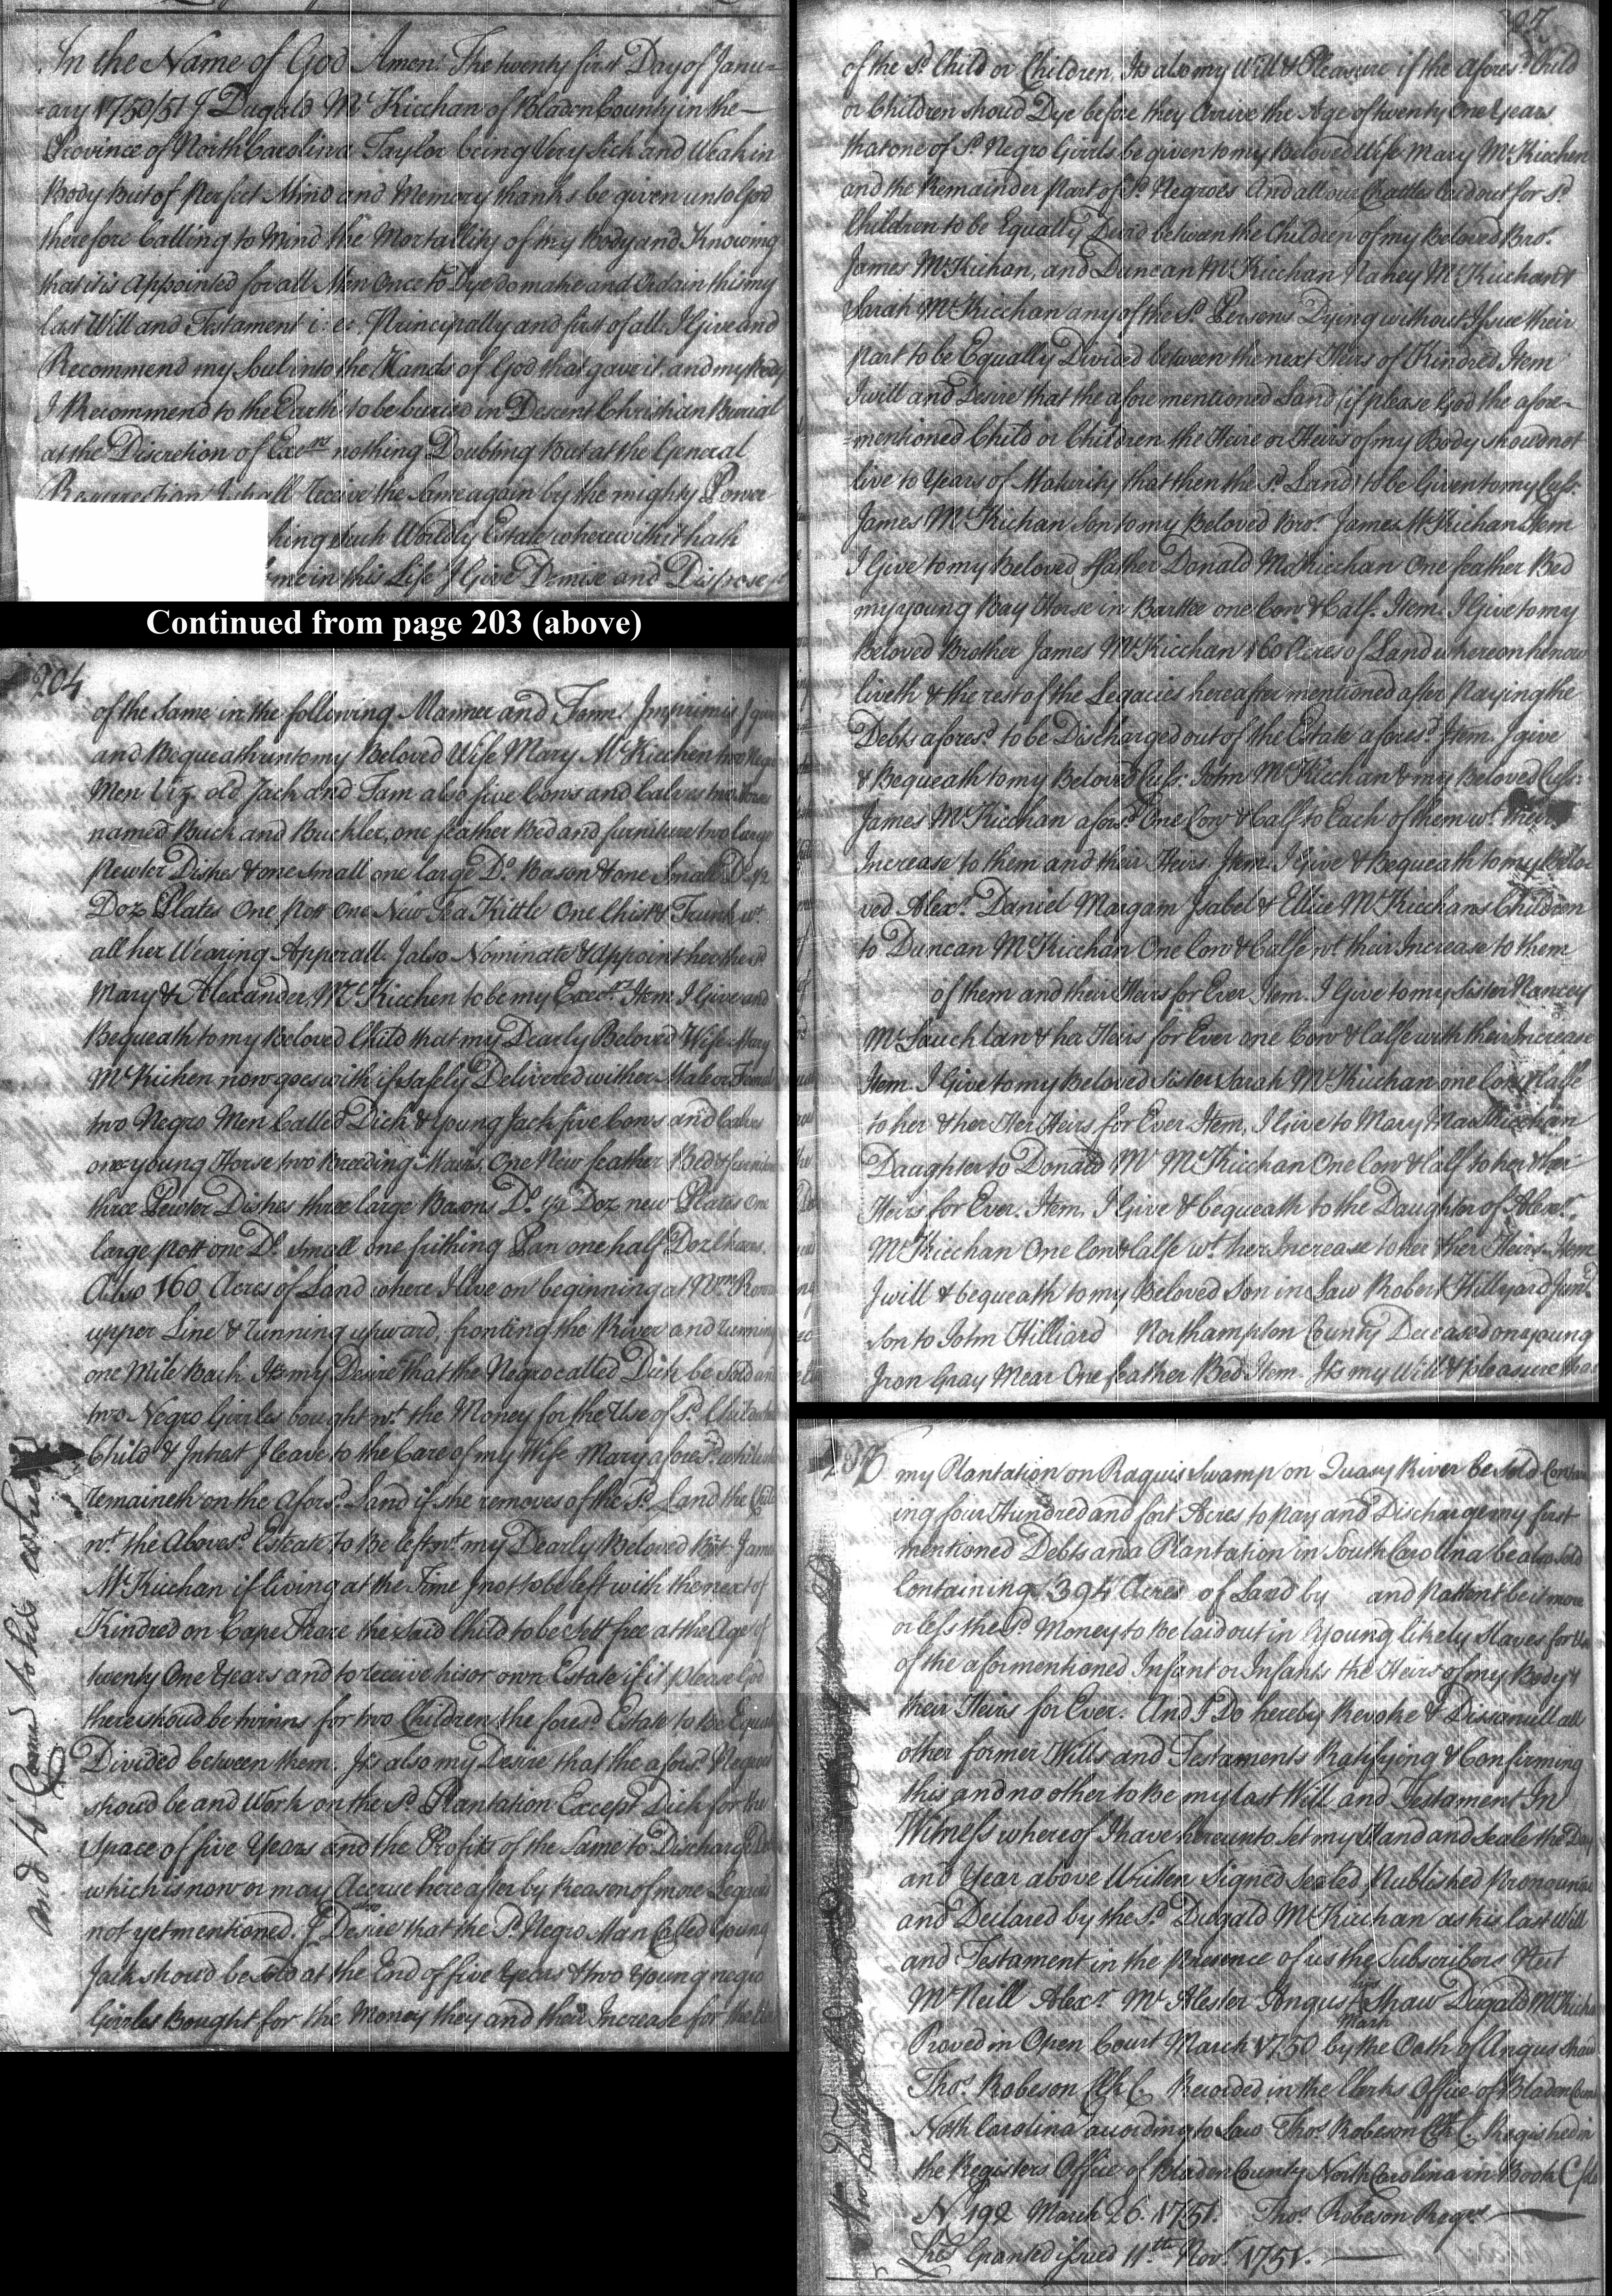 In the Name of God Amen. The twenty first Day of Janu=
=ary 1750/51 I Dugald McKicchan of Bladen County in the
Province of North Carolina Taylor being Very Sick and Weak in
Body but of Perfect Mind and Memory thanks be given unto God
therefore Calling to Mind the Mortallity of my Body and Knowing
that it is Appointed for all Men once to Dye do make and Ordain this my
last Will and Testament i: e: Principally and first of all I Give and
Recommend my Soul into the Hands of God that gave it, and my Body
I Recommend to the Earth to be buried in Descent Christian Burial
at the Discretion of Exers nothing Doubting but at the General
Resurrection I shall receive the same again by the mighty Power
hing such Worldly Estate wherewith it hath
me in this Life I Give Demise and Dispose
Continued from page 203 (above)
204
of the Same in the following Manner and Form. Imprimis I give
and Bequeath unto my Beloved Wife Mary McKicchen two Negro
Men Viz. old Jack and Tam also five Cows and Calves two Horses
named Buck and Buckler, one feather Bed and furniture two large
Pewter Dishes & one small one large Do. Bason & one Small Do. 1/2
Doz Plates One Pott One New Tea Kittle One Chist & Trunk wt.
all her Wearing Apperall. I also Nominate & Appoint her the sd.
Mary & Alexander McKicchen to be my Exers. Item I Give and
Bequeath to my Beloved Child that my Dearly Beloved Wife Mary
McKichen now goes with if safely Delivered wither Male or Female
two Negro Men Called Dick & Young Jack five Cows and Calves
one young Horse two Breeding Mairs, One New feather Bed & furniture
three Pewter Dishes three large Basons Do. 1/2 Doz new Plates One
large Pott one Do. small one frithing Pan one half Doz Chairs.
Also 160 Acres of Land where I live on beginning at Wm.
upper Line & running upward, fronting the River and running
one Mile Back. Its my Desire that the Negro called Dick be Sold and
two Negro Girrles bought wt. the Money for the Use of sd. Child
Child & Intrest I leave to the Care of my Wife Mary aforesd. while she
remaineth on the Aforsd. Land if she removes of the sd. Land the Child
wt. the Abovesd. Esteate to be left wt. my Dearly Beloved Bro. James
McKicchan if living at the Time if not to be left with the next of
Kindred on Cape Feare the said Child to be Sett free at the Age of
twenty One Years and to receive his or own Estate if it please God
there shoud be twinns for two Children the foresd. Estate to be Equally
Divided between them. Its also my Desire that the aforsd. Negroes
shoud be and Work on the sd. Plantation Except Dick for the
space of five Years and the Profits of the Same to Discharge Debts
which is now or may Accrue hereafter by Reason of more Legacies
not yet mentioned. I also Desire that the sd. Negro Man Called Young
Jack shoud be Sold at the End of five Years & two Young negro
Girrles Bought for the Money they and their Increase for the Use
207
of the sd. Child or Children. Its also my Will & Pleasure if the aforesd. Child
or Children shoud Dye before they Arrive the Age of twenty One Years
that one of sd. Negro Girrls be given to my Beloved Wife Mary McKicchen
and the Remainder Part of sd. Negroes And all our Chattles laid out for sd.
Children to be Equally Devid between the Children of my Beloved Bro.
James McKichan, and Duncan McKicchan Nancy McKicchan &
Sarah McKicchan any of the sd. Persons Dying without Issue their
part to be Equally Divided between the next Heirs of Kindred Item
I will and Desire that the afore mentioned Land (if please God the afore=
=mentioned Child or Children the Heire or Heirs of my Body shoud not
live to Years of Maturity that then the sd. Land to be Given to my Cuss.
James McKichan Son to my Beloved Bro. James McKichan Item
I Give to my Beloved ffather Donald McKicchan One feather Bed
my young Bay Horse in Barttee one Cow & Calf. Item. I Give to my
Beloved Brother James McKicchan 160 Acres of Land whereon he now
liveth & the rest of the Legacies hereafter mentioned after Paying the
Debts aforesd. to be Discharged out of the Estate aforesd. Item. I give
& Bequeath to my Beloved Cuss: John McKicchan & my Beloved Cuss:
James McKicchan aforsd. One Cow & Calf to Each of them wt. their
Increase to them and their Heirs. Item. I Give & Bequeath to my Belo=
ved Alexr. Daniel Margam Isabel & Ellice McKicchans Children
to Duncan McKicchan One Cow & Calfe wt. their Increase to them
of them and their Heirs for Ever Item. I Give to my Sister Nancey
McLauchlan & her Heirs for Ever one Cow & Calfe with their Increase
Item. I Give to my Beloved Sister Sarah McKicchan one Cow & Calfe
to her & her Her Heirs for Ever Item, I Give to Mary MacKicchan
Daughter to Donald Mc McKicchan One Cow & Calf to her & her
Heirs for Ever. Item, I Give & bequeath to the Daughter of Alexr.
McKicchan One Cow & Calfe wt. her Increase to her & her Heirs. Item
I will & bequeath to my Beloved Son in Law Robert Hillyard Junr.
Son to John Hilliard Northampton County Deceased on a young
Iron Gray Mear One feather Bed Item. Its my Will & pleasure that
my Plantation on Raquis Swamp on Quasy River be Sold Contain
ing four Hundred and fort Acres to Pay and Discharge my first
mentioned Debts and a Plantation in South Carolina be also Sold
Containing 394 Acres of Land by and Pattent be it more
or less the sd. Money to be laid out in Young likely Slaves for Use
of the aformentioned Infant or Infants the Heirs of my Body &
their Heirs for Ever. And I Do hereby Revoke & Dissanull all
other former Wills and Testaments Ratifying & Confirming
this and no other to be my last Will and Testament In
Witness whereof I have hereunto set my Hand and Seale the Day
and Year above Written Signed Sealed Published Pronounced
and Declared by the sd. Dugald McKicchan as his last Will
and Testament in the Presence of us the Subscribers
McNeill Alexr. McAlester Angus his Mark Shaw Dugald McKicchan
Proved in Open Court March 1750 by the Oath of Angus Shaw
Thos. Robeson Clk C. Recorded in the Clerks Office of Bladen County
North Carolina according to Law Thos. Robeson Clk C. Registred in
the Registers Office of Bladen County North Carolina in Book C
No 192 March 26. 1751. Thos. Robeson Regr.
Lres Granted issued 11th Novr. 1751.